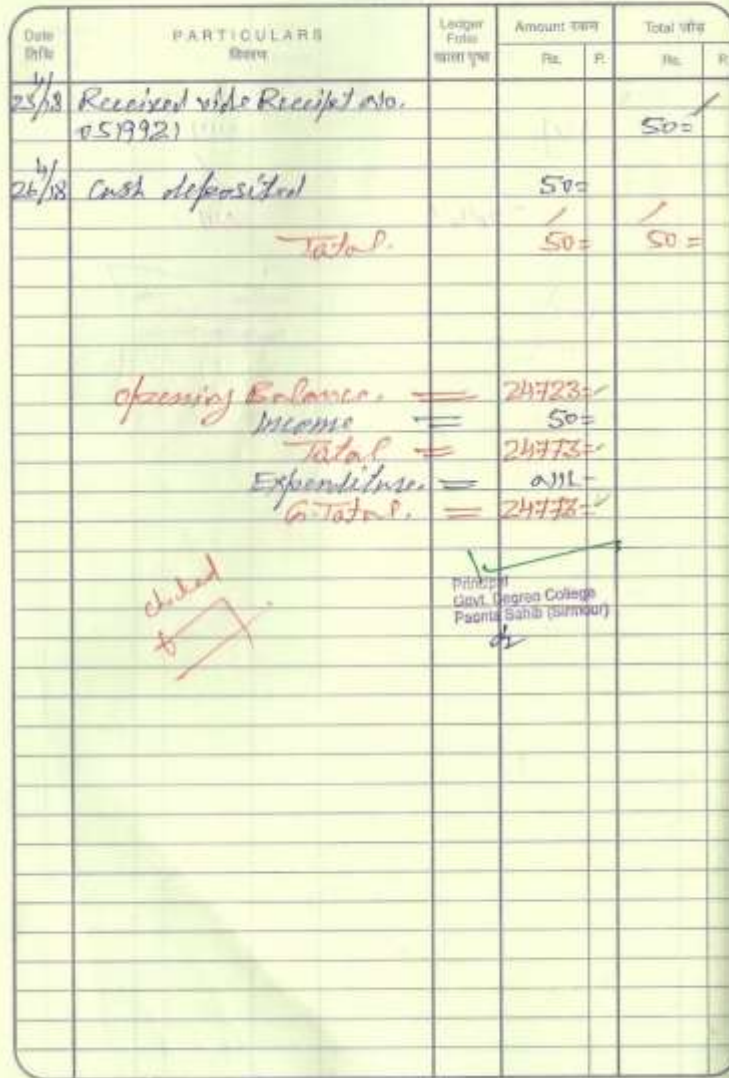 Date PARTICULARS Ledger Folio Amount रकम Total जोड़
तिथि विवरण खाता पृष्ठ Rs. P. Rs. P.
25/4/18 Received vide Receipt No.
0519921 50=
26/4/18 Cash deposited 50=
Total. 50= 50=
Opening Balance. = 24723=
Income = 50=
Total = 24773=
Expenditure. = Nil-
G.Total. = 24773=
checked
Principal
Govt. Degree College
Paonta Sahib (Sirmour)